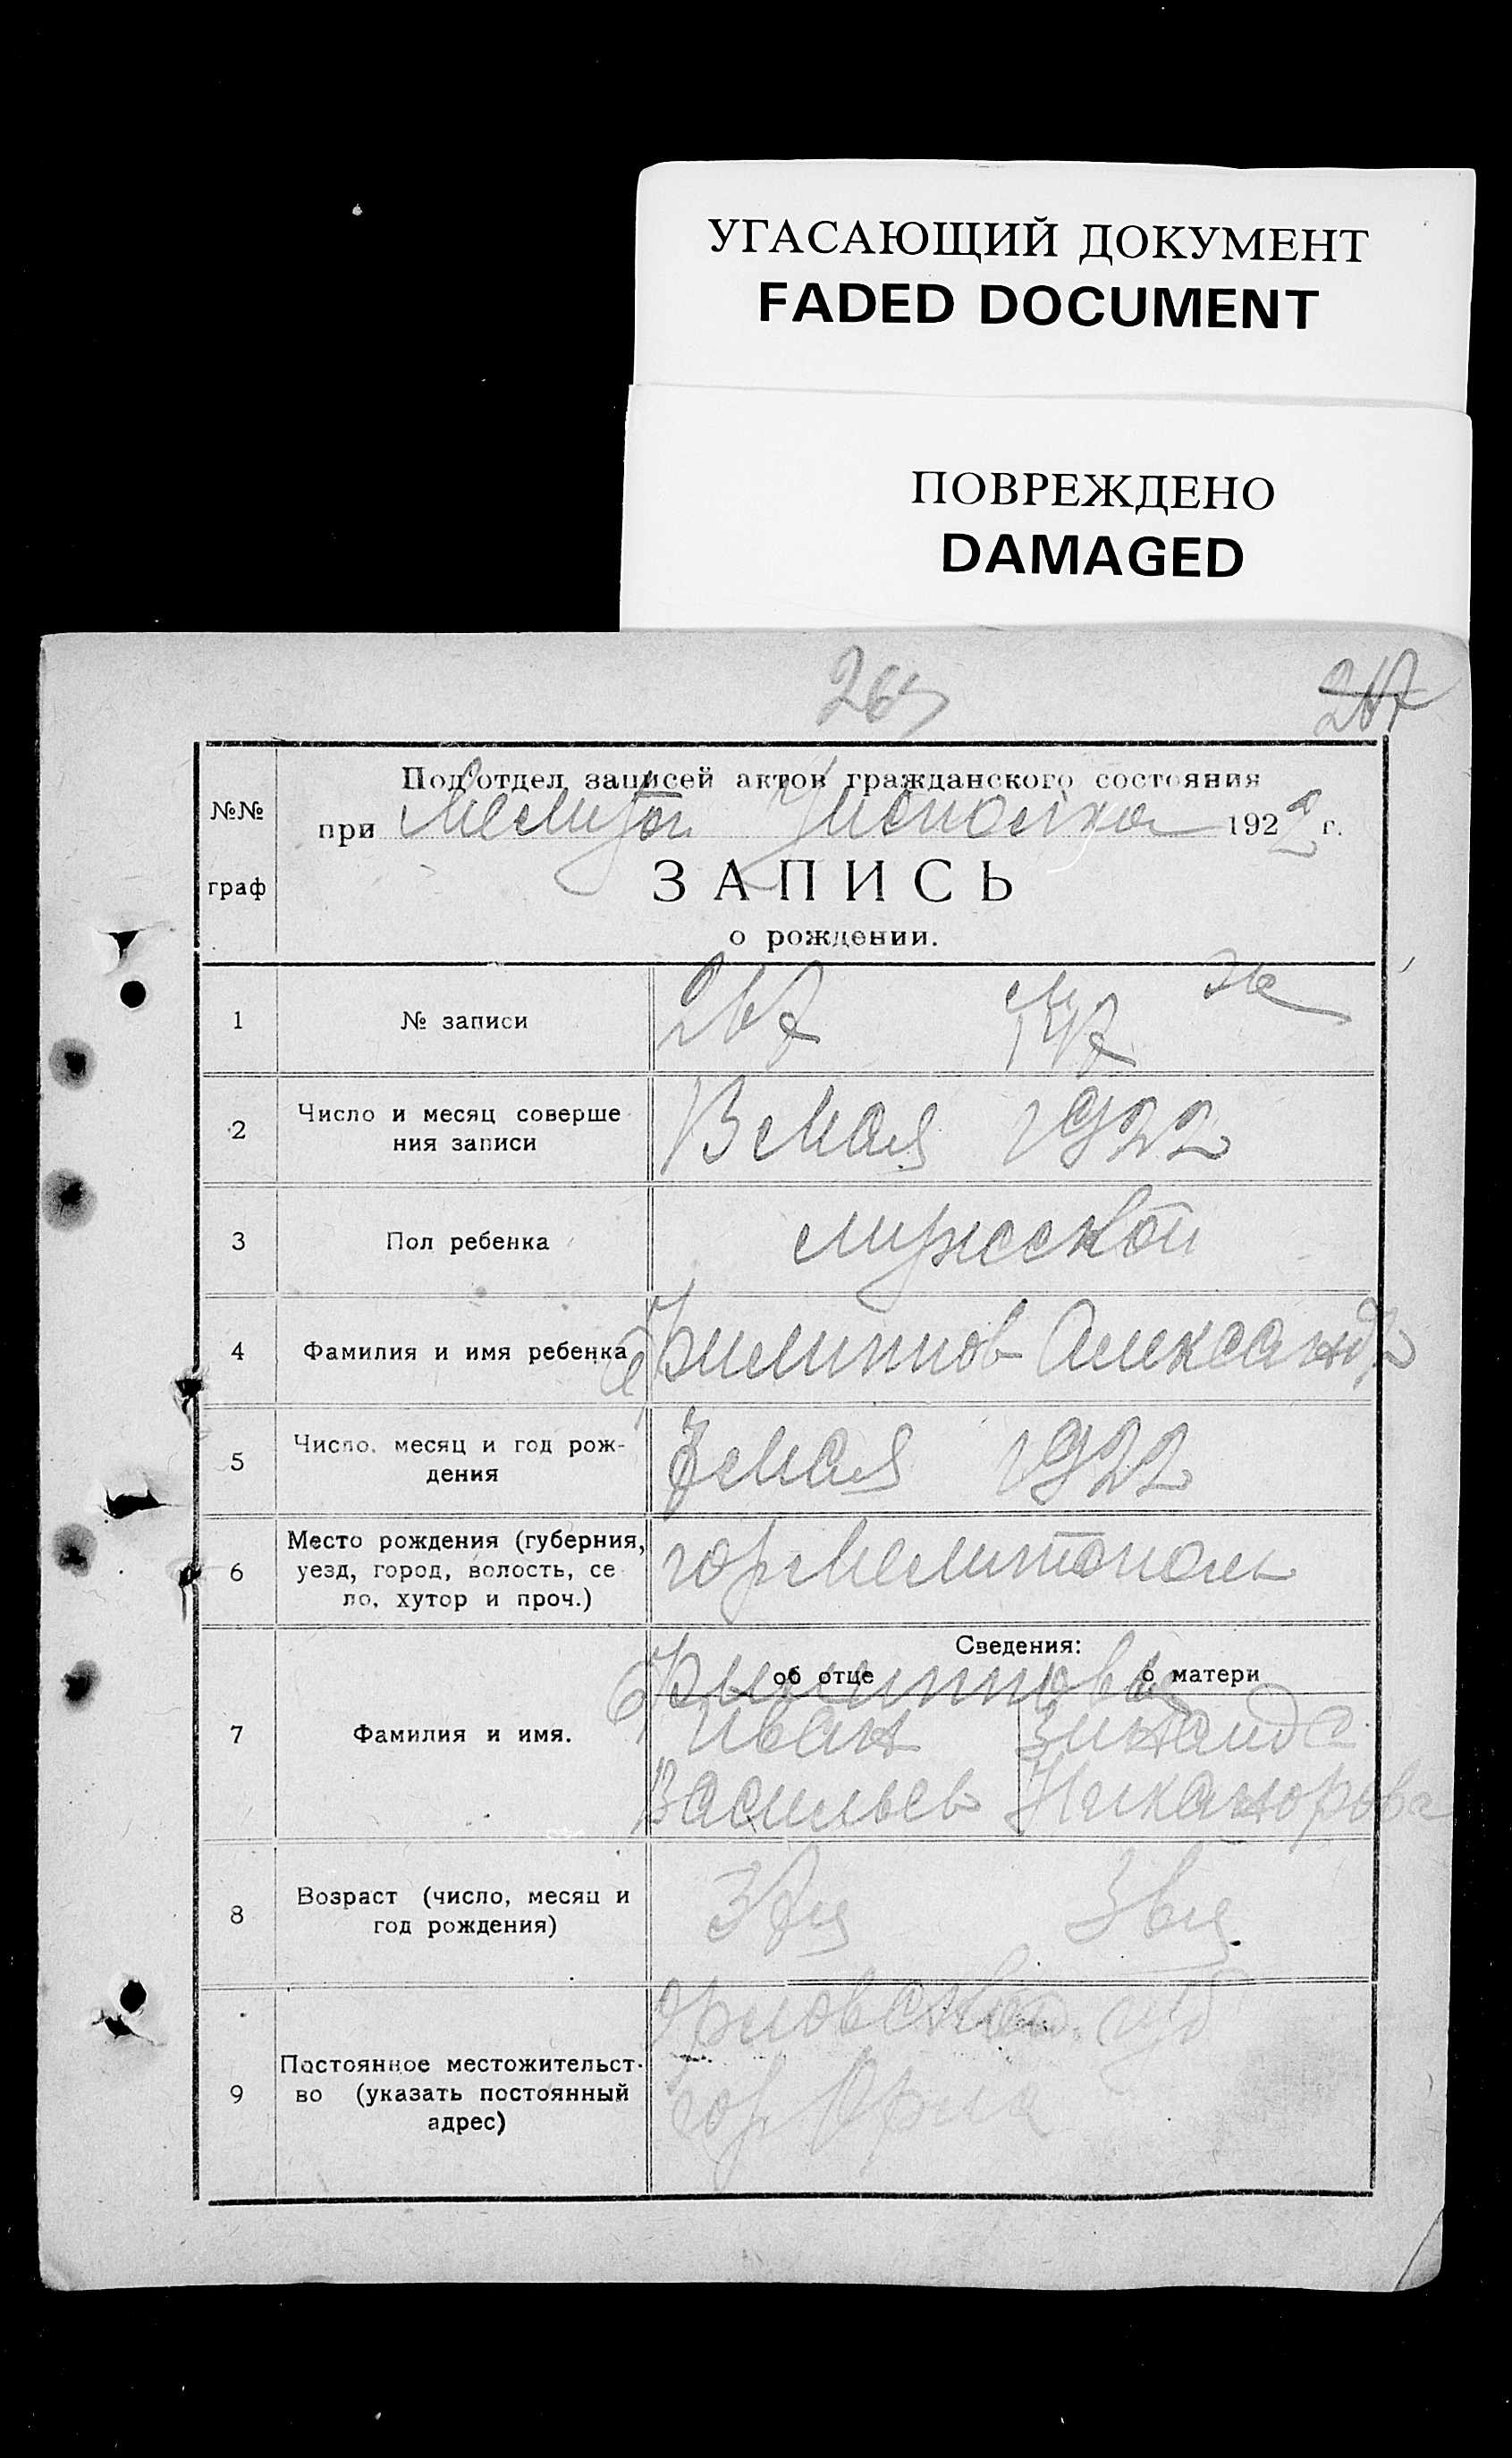 УГАСАЮЩИЙ ДОКУМЕНТ
FADED DOCUMENT
ПОВРЕЖДЕНО
DAMAGED
267
Под‘отдел записей актов гражданского состояния
№№
при Мелитоп. Усполкоме 1922 г.
граф
ЗАПИСЬ
о рождении.
1 № записи 267
2 Число и месяц соверше
ния записи
мая 1922
3 Пол ребенка мужской
4 Фамилия и имя ребенка Филиппов Александр
5 Число, месяц и год рож-
дения
мая 1922
6 Место рождения (губерния,
уезд, город, волость, се
ло, хутор и проч.)
гор Мелитополь
Сведения:
об отце о матери
Филипповы
7 Фамилия и имя.
Иван Зинаида
Васильев Никанорова
8 Возраст (число, месяц и
год рождения)
9 Постоянное местожительст-
во (указать постоянный
адрес)
Орловской губ
гор Орла